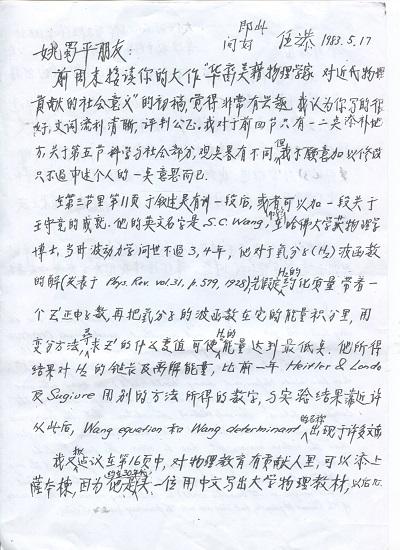 即此
问好 任恭 1983.5.17
姚蜀平朋友:
前周末接读你的大作"华裔美籍物理学家对近代物理
贡献的社会意义"的初稿,觉得非常有兴趣。我认为你写的很
好,文词流利清晰,评判公正。我对于前四节只有一二点添补地
方,关于第五节科学与社会部分,观点畧有不同,但我不愿意加以修改
只不过申述个人的一点意思而已。
在第三节里第11页于叙述吴有训一段后,或者可以加一段关于
王守竞的成就。他的英文名字是S.C. Wang,在哈佛大学获物理学
博士,当时波动力学问世不过3,4年,他对于氢分子(H₂)波函数
的解(发表于Phys. Rev. vol.31, p.579, 1928),
个Z'正电子数,再把氢分子的波函数在它的能量积分里,用
变分方法,寻求Z'的什么变值可使H₂的能量达到最低点。他所得
结果对H₂的键长及离解能量,比前一年Heitler & London
及Sugiura用别的方法所得的数字,与实验结果靠近许多
从此后,Wang equation和Wang determinant的名称出现于许多文献
我又拟建议在第16页中,对物理教育有贡献人里,可以添上
萨本栋,因为他是第一位用中文写出大学物理教材,以后